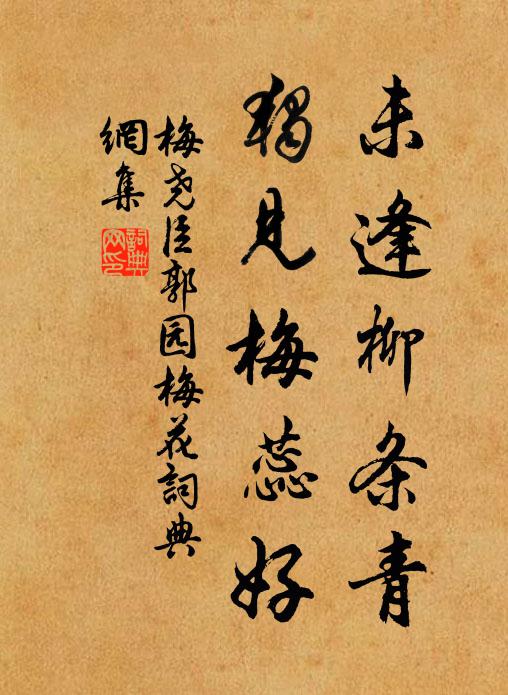 未逢柳条青
獨见梅蕊好
梅尧臣郭园梅花詞典
網集
詞典网印